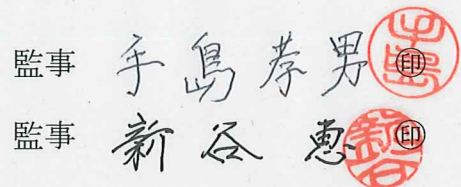 監事 手島孝男 ㊞
監事 新谷 恵 ㊞